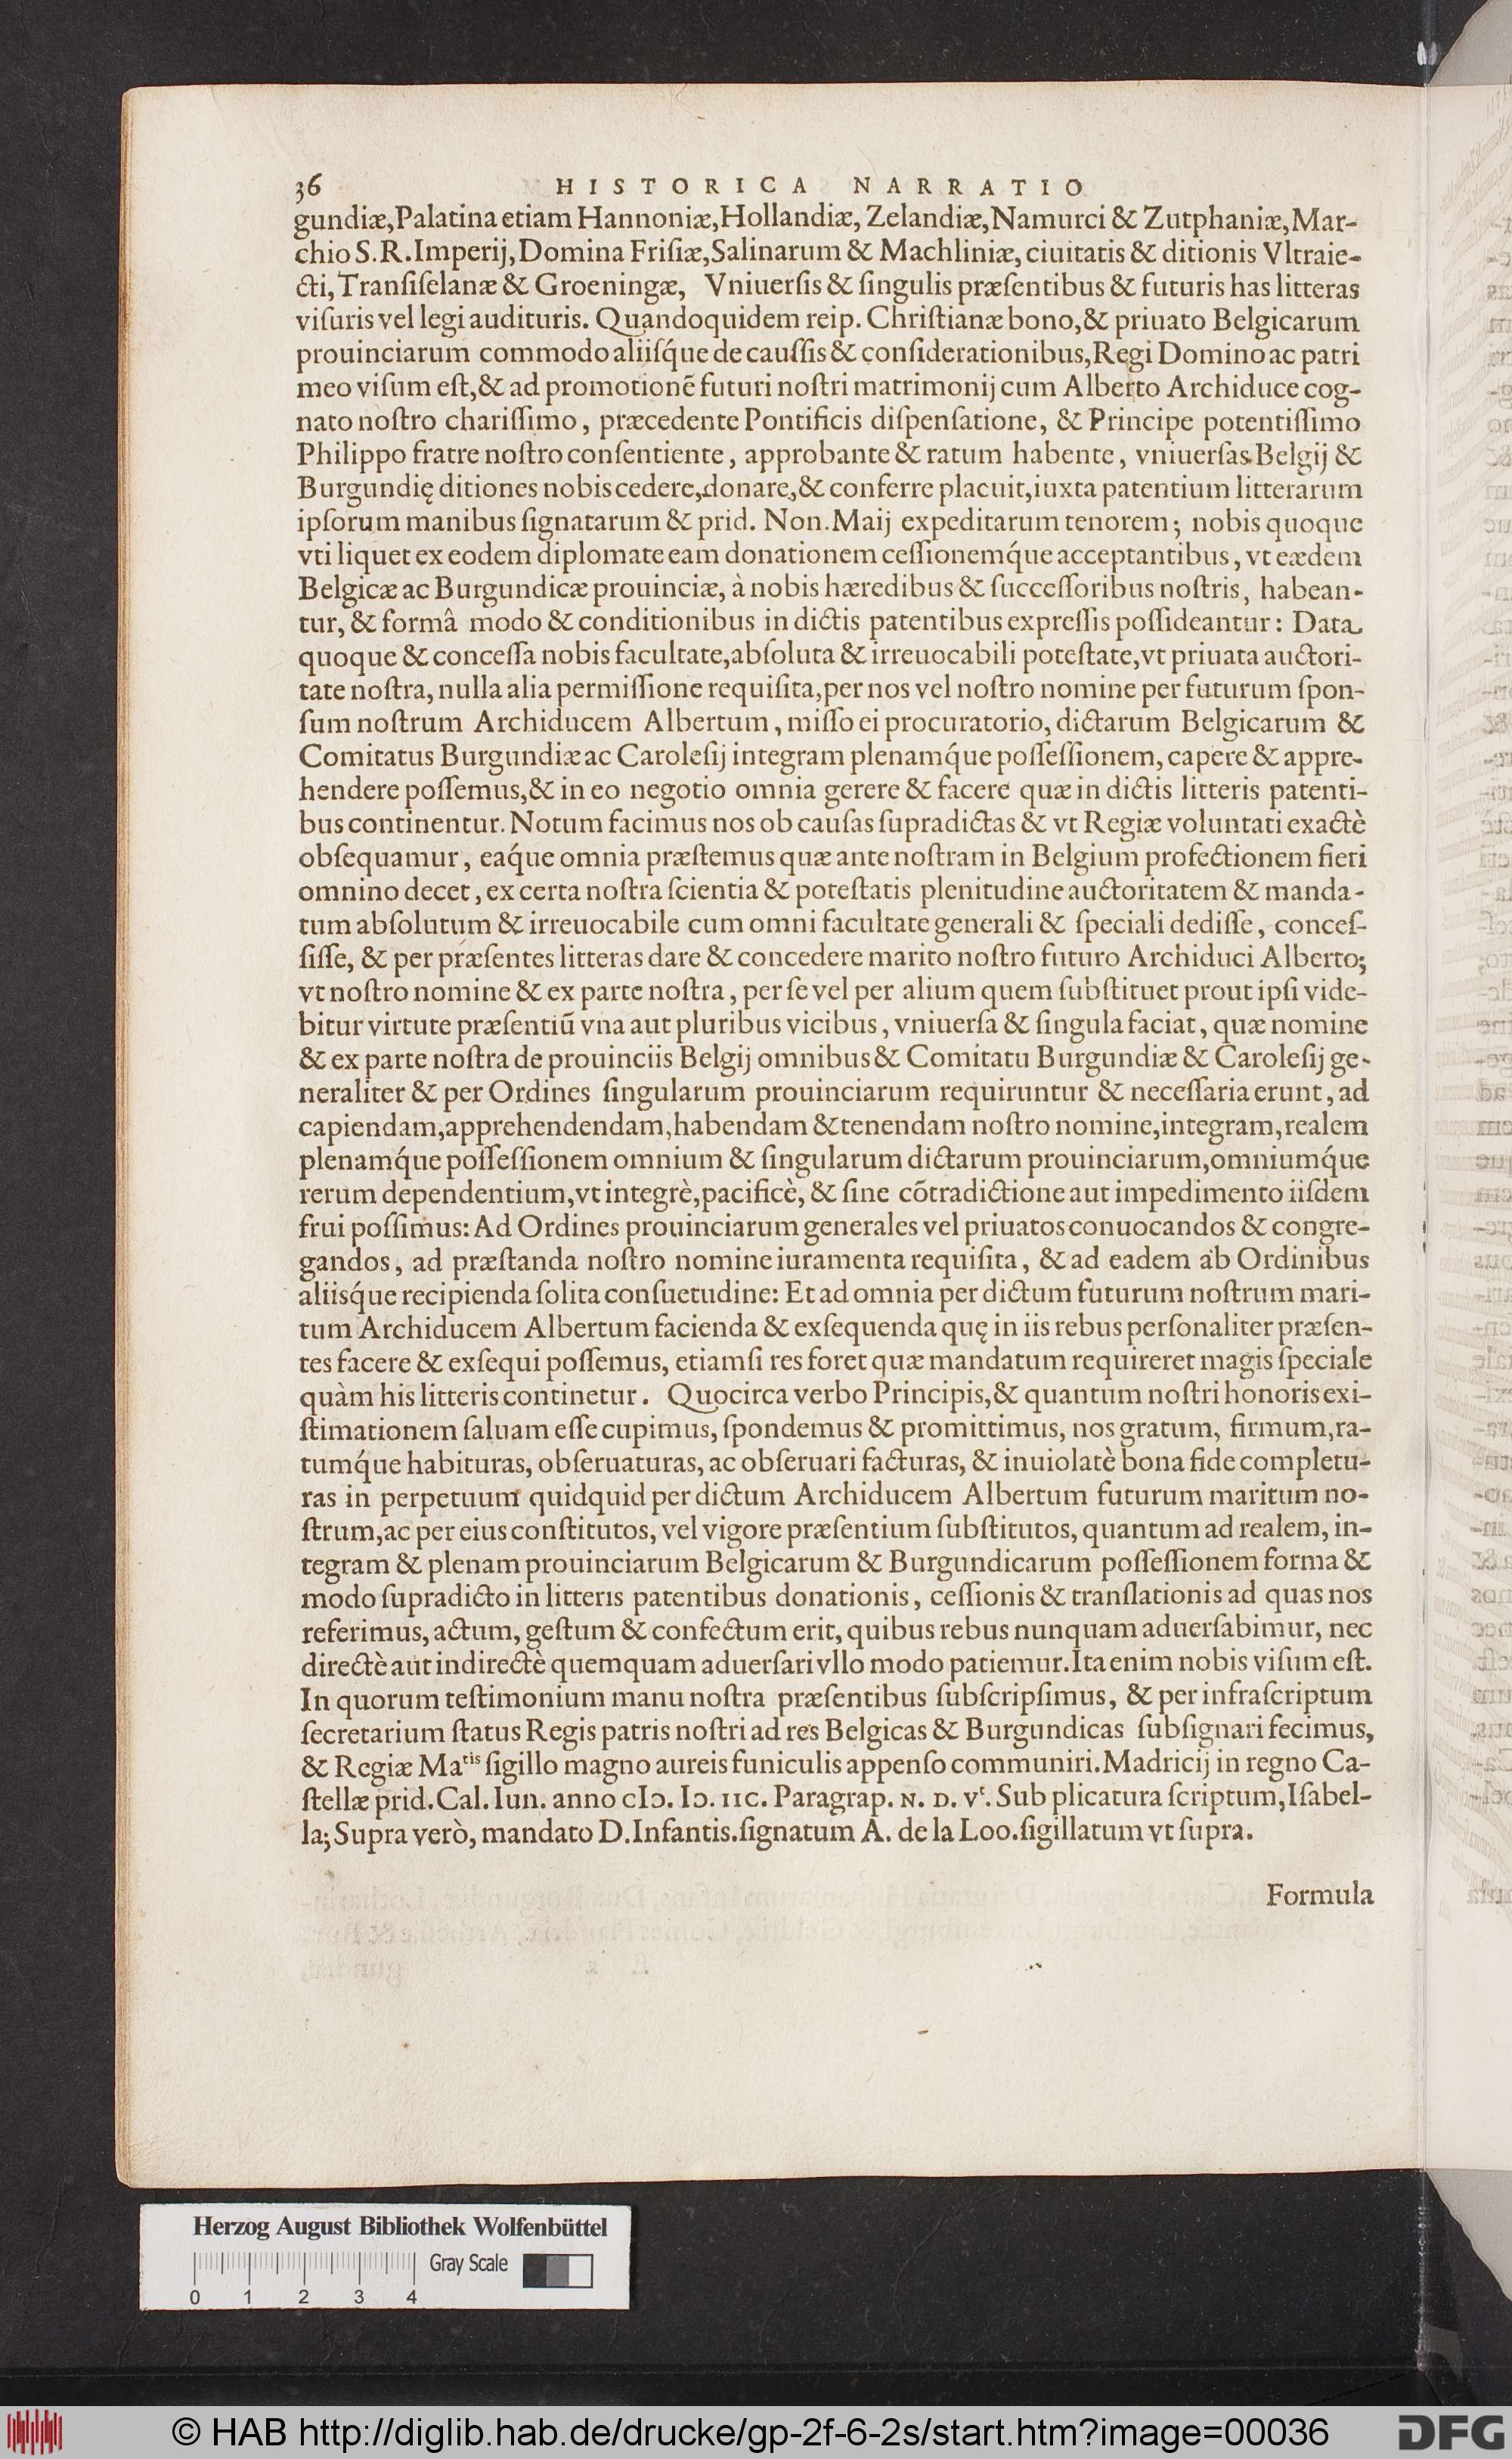 36 HISTORICA NARRATIO
gundiæ, Palatina etiam Hannoniæ, Hollandiæ, Zelandiæ, Namurci & Zutphaniæ, Mar-
chio S.R. Imperij, Domina Friſiæ, Salinarum & Machliniæ, ciuitatis & ditionis Vltraie-
cti, Tranſiſelanæ & Groeningæ, Vniuerſis & ſingulis præſentibus & futuris has litteras
viſuris vel legi audituris. Quandoquidem reip. Chriſtianæ bono, & priuato Belgicarum
prouinciarum commodo aliiſq́ue de cauſſis & conſiderationibus, Regi Domino ac patri
meo viſum eſt, & ad promotionē futuri noſtri matrimonij cum Alberto Archiduce cog-
nato noſtro chariſſimo, præcedente Pontificis diſpenſatione, & Principe potentiſſimo
Philippo fratre noſtro conſentiente, approbante & ratum habente, vniuerſas Belgij &
Burgundię ditiones nobis cedere, donare, & conferre placuit, iuxta patentium litterarum
ipſorum manibus ſignatarum & prid. Non. Maij expeditarum tenorem; nobis quoque
vti liquet ex eodem diplomate eam donationem ceſſionemq́ue acceptantibus, vt eædem
Belgicæ ac Burgundicæ prouinciæ, à nobis hæredibus & ſucceſſoribus noſtris, habean-
tur, & formâ modo & conditionibus in dictis patentibus expreſſis poſſideantur: Data
quoque & conceſſa nobis facultate, abſoluta & irreuocabili poteſtate, vt priuata auctori-
tate noſtra, nulla alia permiſſione requiſita, per nos vel noſtro nomine per futurum ſpon-
ſum noſtrum Archiducem Albertum, miſſo ei procuratorio, dictarum Belgicarum &
Comitatus Burgundiæ ac Caroleſij integram plenamq́ue poſſeſſionem, capere & appre-
hendere poſſemus, & in eo negotio omnia gerere & facere quæ in dictis litteris patenti-
bus continentur. Notum facimus nos ob cauſas ſupradictas & vt Regiæ voluntati exactè
obſequamur, eaq́ue omnia præſtemus quæ ante noſtram in Belgium profectionem fieri
omnino decet, ex certa noſtra ſcientia & poteſtatis plenitudine auctoritatem & manda-
tum abſolutum & irreuocabile cum omni facultate generali & ſpeciali dediſſe, conceſ-
ſiſſe, & per præſentes litteras dare & concedere marito noſtro futuro Archiduci Alberto;
vt noſtro nomine & ex parte noſtra, per ſe vel per alium quem ſubſtituet prout ipſi vide-
bitur virtute præſentiū vna aut pluribus vicibus, vniuerſa & ſingula faciat, quæ nomine
& ex parte noſtra de prouinciis Belgij omnibus & Comitatu Burgundiæ & Caroleſij ge-
neraliter & per Ordines ſingularum prouinciarum requiruntur & neceſſaria erunt, ad
capiendam, apprehendendam, habendam & tenendam noſtro nomine, integram, realem
plenamq́ue poſſeſſionem omnium & ſingularum dictarum prouinciarum, omniumq́ue
rerum dependentium, vt integrè, pacificè, & ſine cōtradictione aut impedimento iiſdem
frui poſſimus: Ad Ordines prouinciarum generales vel priuatos conuocandos & congre-
gandos, ad præſtanda noſtro nomine iuramenta requiſita, & ad eadem ab Ordinibus
aliisq́ue recipienda ſolita conſuetudine: Et ad omnia per dictum futurum noſtrum mari-
tum Archiducem Albertum facienda & exſequenda quę in iis rebus perſonaliter præſen-
tes facere & exſequi poſſemus, etiamſi res foret quæ mandatum requireret magis ſpeciale
quàm his litteris continetur. Quocirca verbo Principis, & quantum noſtri honoris exi-
ſtimationem ſaluam eſſe cupimus, ſpondemus & promittimus, nos gratum, firmum, ra-
tumq́ue habituras, obſeruaturas, ac obſeruari facturas, & inuiolatè bona fide completu-
ras in perpetuum quidquid per dictum Archiducem Albertum futurum maritum no-
ſtrum, ac per eius conſtitutos, vel vigore præſentium ſubſtitutos, quantum ad realem, in-
tegram & plenam prouinciarum Belgicarum & Burgundicarum poſſeſſionem forma &
modo ſupradicto in litteris patentibus donationis, ceſſionis & tranſlationis ad quas nos
referimus, actum, geſtum & confectum erit, quibus rebus nunquam aduerſabimur, nec
directè aut indirectè quemquam aduerſari vllo modo patiemur. Ita enim nobis viſum eſt.
In quorum teſtimonium manu noſtra præſentibus ſubſcripſimus, & per infraſcriptum
ſecretarium ſtatus Regis patris noſtri ad res Belgicas & Burgundicas ſubſignari fecimus,
& Regiæ Maᵗⁱˢ ſigillo magno aureis funiculis appenſo communiri. Madricij in regno Ca-
ſtellæ prid. Cal. Iun. anno cIↄ. Iↄ. IIC. Paragrap. N. D. vᵗ. Sub plicatura ſcriptum, Iſabel-
la; Supra verò, mandato D. Infantis. ſignatum A. de la Loo. ſigillatum vt ſupra.
Formula
Herzog August Bibliothek Wolfenbüttel
Gray Scale
0 1 2 3 4
© HAB http://diglib.hab.de/drucke/gp-2f-6-2s/start.htm?image=00036
DFG